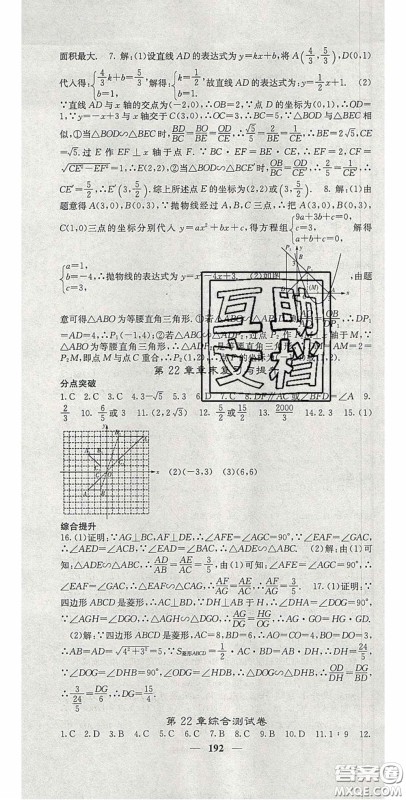 面积最大. 7. 解:(1)设直线 AD 的表达式为 y=kx+b,将 A(4/3,5/3),D(0,1)
代入得:{4/3k+b=5/3,b=1,解得:{k=1/2,b=1,故直线 AD 的表达式为 y=1/2x+1. (2)
∵直线 AD 与 x 轴的交点为(-2,0),∴OB=2,∵点 D 的坐标为(0,1),∴OD=
1,∵y=-x+3 与 x 轴交于 C(3,0),∴OC=3,∴BC=5,∵△BOD 与△BEC 相
似,①当△BOD∽△BEC 时,BD/BC=BO/BE=OD/CE,∴√5/5=2/BE=1/CE,∴BE=2√5,
CE=√5,过 E 作 EF⊥x 轴于点 F. ∵BC·EF=BE·CE,∴EF=2,CF=
√CE²-EF²=1,∴E(2,2),②当△BOD∽△BCE′时,OB/BC=OD/CE′,∴2/5=1/CE′,∴
CE′=5/2,∴E′(3,5/2),综上所述点 E 的坐标为(2,2)或(3,5/2). 8. 解:(1)由
题意得 A(3,0),B(0,3),∵抛物线经过 A,B,C 三点,∴把 A(3,0),B(0,3),
C(1,0)三点的坐标分别代入 y=ax²+bx+c,得方程组{9a+3b+c=0,c=3,a+b+c=0, 解得
{a=1,b=-4,c=3,∴抛物线的表达式为 y=x²-4x+3. (2)如图 ,由题
意可得△ABO 为等腰直角三角形.
第 22 章章末复习与提升
分点突破
1. C 2. C 3. C 4. 3-√5 5. D 6. C 9.
2/3 10. 6/5 或 3 11. 2 或 3 12. 15/2 13. 2000/3 14. 2.3 15. (1)
(2)(-3,3) (3)(6,6)
综合提升
16. (1)证明:∵AG⊥BC,AF⊥DE,∴∠AFE=∠AGC=90°,∵∠EAF=∠GAC,
∴∠AED=∠ACB,∵∠EAD=∠BAC,∴△ADE∽△ABC. (2)解:由(1)可
知:△ADE∽△ABC,∴AD/AB=AE/AC=3/5,由(1)可知:∠AFE=∠AGC=90°,∴
∠EAF=∠GAC,∴△EAF∽△CAG,∴AF/AG=AE/AC,∴AF/AG=3/5. 17. (1)证明:∵
四边形 ABCD 是菱形,∴AC⊥BD,∵DH⊥AB 于 H,∴∠DHA=∠DOG=90°,
∵∠AGH=∠DGO,∴△AGH∽△DGO,∴AG/DG=HG/GO,∴AG·GO=HG·DG.
(2)解:∵四边形 ABCD 是菱形,AC=8,BD=6,∴AO=CO=4,BO=DO=3,
∴AB=AD=√4²+3²=5,∵S菱形ABCD=1/2·AC·BD=AB·DH,∴DH=24/5,
∵∠DGO=∠DHB=90°,∠ODG=∠HDB,∴△DOG∽△DHB,∴OD/DH=DG/BD,
∴3/(24/5)=DG/6,∴DG=15/4.
第 22 章综合测试卷
1. C 2. D 3. B 4. C 5. C 6. C 7. D 8. B 9. C 10. B 11. 1∶9 12.
192
互助
文档
答案圈
MXQE.COM